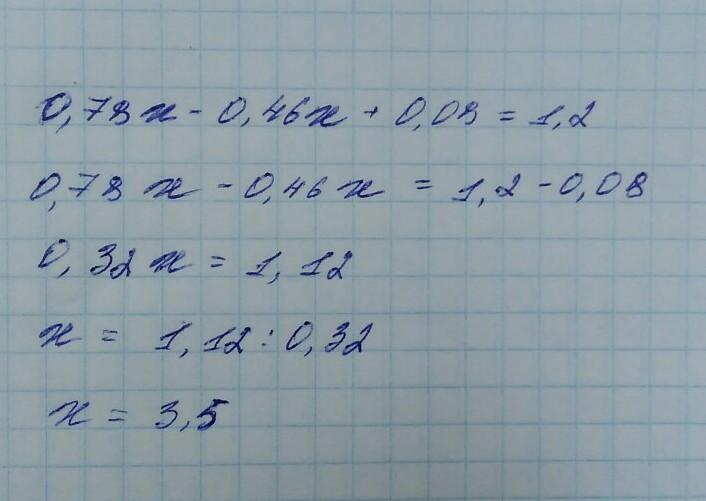 0,78x - 0,46x + 0,08 = 1,2
0,78x - 0,46x = 1,2 - 0,08
0,32x = 1,12
x = 1,12 : 0,32
x = 3,5